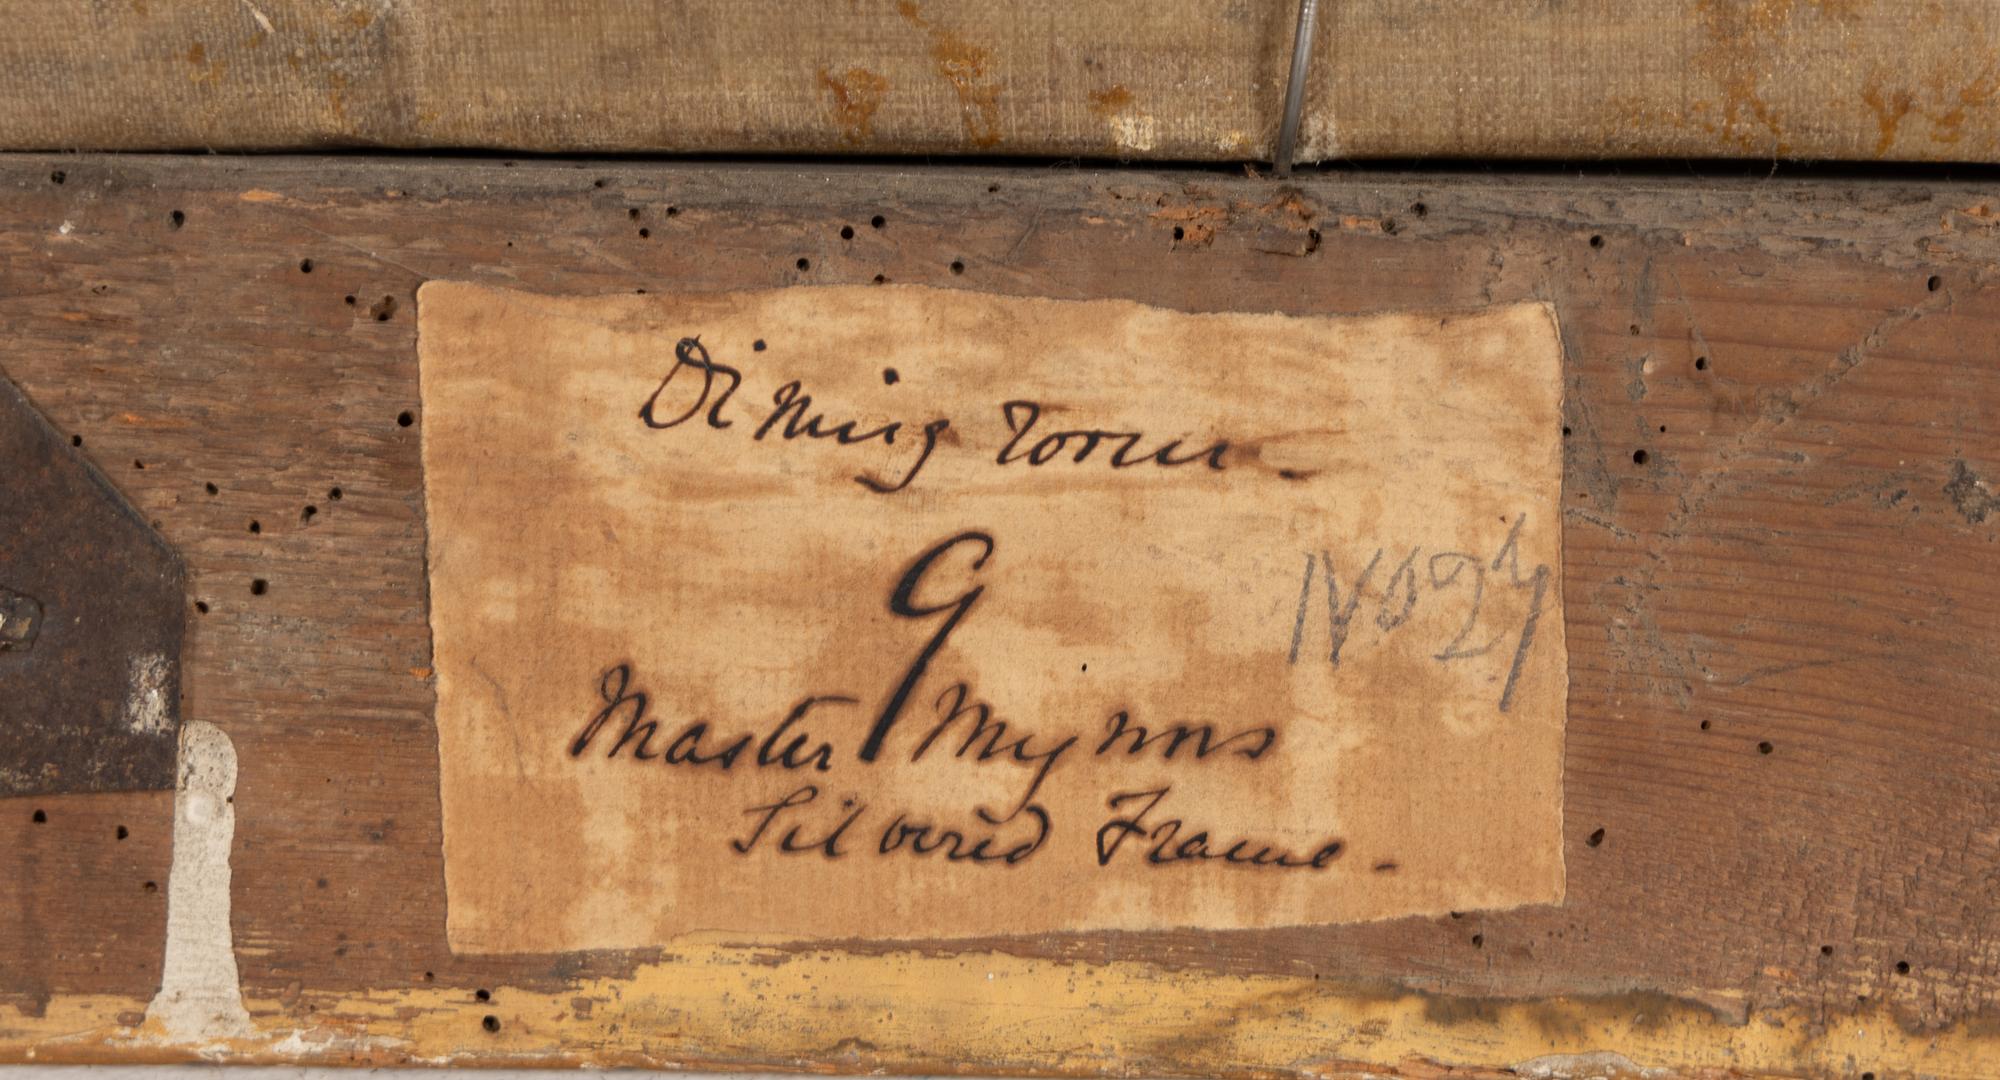 Dining room -
9
No 24
Master Mynns
Silvered Frame -